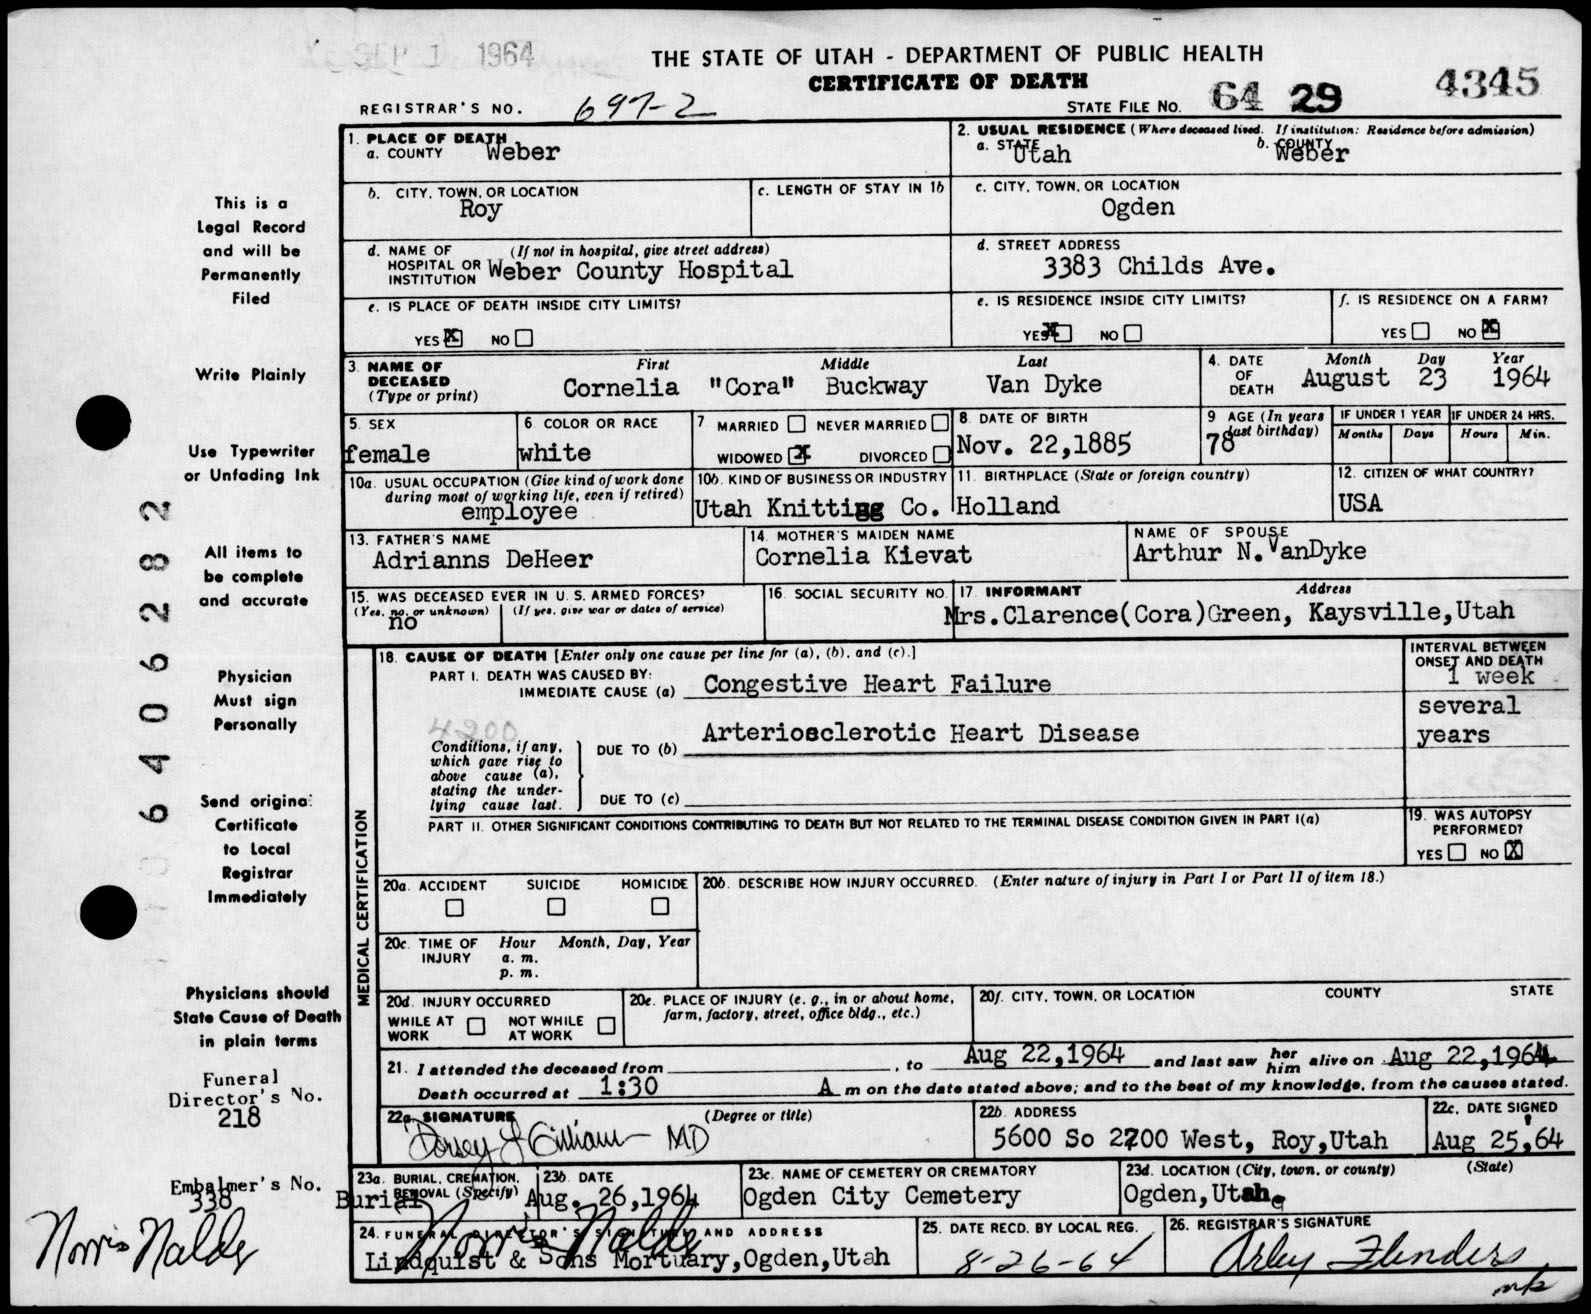 SEP 1 1964
THE STATE OF UTAH - DEPARTMENT OF PUBLIC HEALTH
CERTIFICATE OF DEATH
REGISTRAR'S NO. 697-2 STATE FILE NO. 64 29 4345
This is a
Legal Record
and will be
Permanently
Filed
Write Plainly
Use Typewriter
or Unfading Ink
All items to
be complete
and accurate
Physician
Must sign
Personally
Send original
Certificate
to Local
Registrar
Immediately
Physicians should
State Cause of Death
in plain terms
Funeral
Director's No.
218
Embalmer's No.
338
Norris Nalder
6406282
1. PLACE OF DEATH
a. COUNTY Weber
2. USUAL RESIDENCE (Where deceased lived. If institution: Residence before admission)
a. STATE Utah b. COUNTY Weber
b. CITY, TOWN, OR LOCATION
Roy
c. LENGTH OF STAY IN 1b
c. CITY, TOWN, OR LOCATION
Ogden
d. NAME OF (If not in hospital, give street address)
HOSPITAL OR
INSTITUTION Weber County Hospital
d. STREET ADDRESS
3383 Childs Ave.
e. IS PLACE OF DEATH INSIDE CITY LIMITS?
YES X NO
e. IS RESIDENCE INSIDE CITY LIMITS?
YES X NO
f. IS RESIDENCE ON A FARM?
YES NO X
3. NAME OF First Middle Last
DECEASED
(Type or print) Cornelia "Cora" Buckway Van Dyke
4. DATE Month Day Year
OF
DEATH August 23 1964
5. SEX
female
6. COLOR OR RACE
white
7 MARRIED NEVER MARRIED
WIDOWED X DIVORCED
8. DATE OF BIRTH
Nov. 22,1885
9 AGE (In years
last birthday)
78
IF UNDER 1 YEAR IF UNDER 24 HRS.
Months Days Hours Min.
10a. USUAL OCCUPATION (Give kind of work done
during most of working life, even if retired)
employee
10b. KIND OF BUSINESS OR INDUSTRY
Utah Knitting Co.
11. BIRTHPLACE (State or foreign country)
Holland
12. CITIZEN OF WHAT COUNTRY?
USA
13. FATHER'S NAME
Adrianns DeHeer
14. MOTHER'S MAIDEN NAME
Cornelia Kievat
NAME OF SPOUSE
Arthur N. VanDyke
15. WAS DECEASED EVER IN U. S. ARMED FORCES?
(Yes, no, or unknown) (If yes, give war or dates of service)
no
16. SOCIAL SECURITY NO.
17. INFORMANT Address
Mrs.Clarence(Cora)Green, Kaysville,Utah
MEDICAL CERTIFICATION
18. CAUSE OF DEATH [Enter only one cause per line for (a), (b), and (c).]
PART I. DEATH WAS CAUSED BY:
IMMEDIATE CAUSE (a) Congestive Heart Failure
INTERVAL BETWEEN
ONSET AND DEATH
1 week
4200
Conditions, if any,
which gave rise to
above cause (a),
stating the under-
lying cause last.
DUE TO (b) Arteriosclerotic Heart Disease
several
years
DUE TO (c)
PART II. OTHER SIGNIFICANT CONDITIONS CONTRIBUTING TO DEATH BUT NOT RELATED TO THE TERMINAL DISEASE CONDITION GIVEN IN PART I(a)
19. WAS AUTOPSY
PERFORMED?
YES NO X
20a. ACCIDENT SUICIDE HOMICIDE
20b. DESCRIBE HOW INJURY OCCURRED. (Enter nature of injury in Part I or Part II of item 18.)
20c. TIME OF Hour Month, Day, Year
INJURY a. m.
p. m.
20d. INJURY OCCURRED
WHILE AT NOT WHILE
WORK AT WORK
20e. PLACE OF INJURY (e. g., in or about home,
farm, factory, street, office bldg., etc.)
20f. CITY, TOWN, OR LOCATION COUNTY STATE
21. I attended the deceased from , to Aug 22,1964 and last saw her him alive on Aug 22,1964
Death occurred at 1:30 A m on the date stated above; and to the best of my knowledge, from the causes stated.
22a. SIGNATURE (Degree or title)
Dorsey F Gilliam MD
22b. ADDRESS
5600 So 2700 West, Roy,Utah
22c. DATE SIGNED
Aug 25,64
23a. BURIAL, CREMATION,
REMOVAL (Specify)
Burial
23b. DATE
Aug. 26,1964
23c. NAME OF CEMETERY OR CREMATORY
Ogden City Cemetery
23d. LOCATION (City, town, or county) (State)
Ogden,Utah
24. FUNERAL DIRECTOR'S SIGNATURE AND ADDRESS
Norris Nalder
Lindquist & Sons Mortuary,Ogden,Utah
25. DATE RECD. BY LOCAL REG.
8-26-64
26. REGISTRAR'S SIGNATURE
Arley Flinders
mk